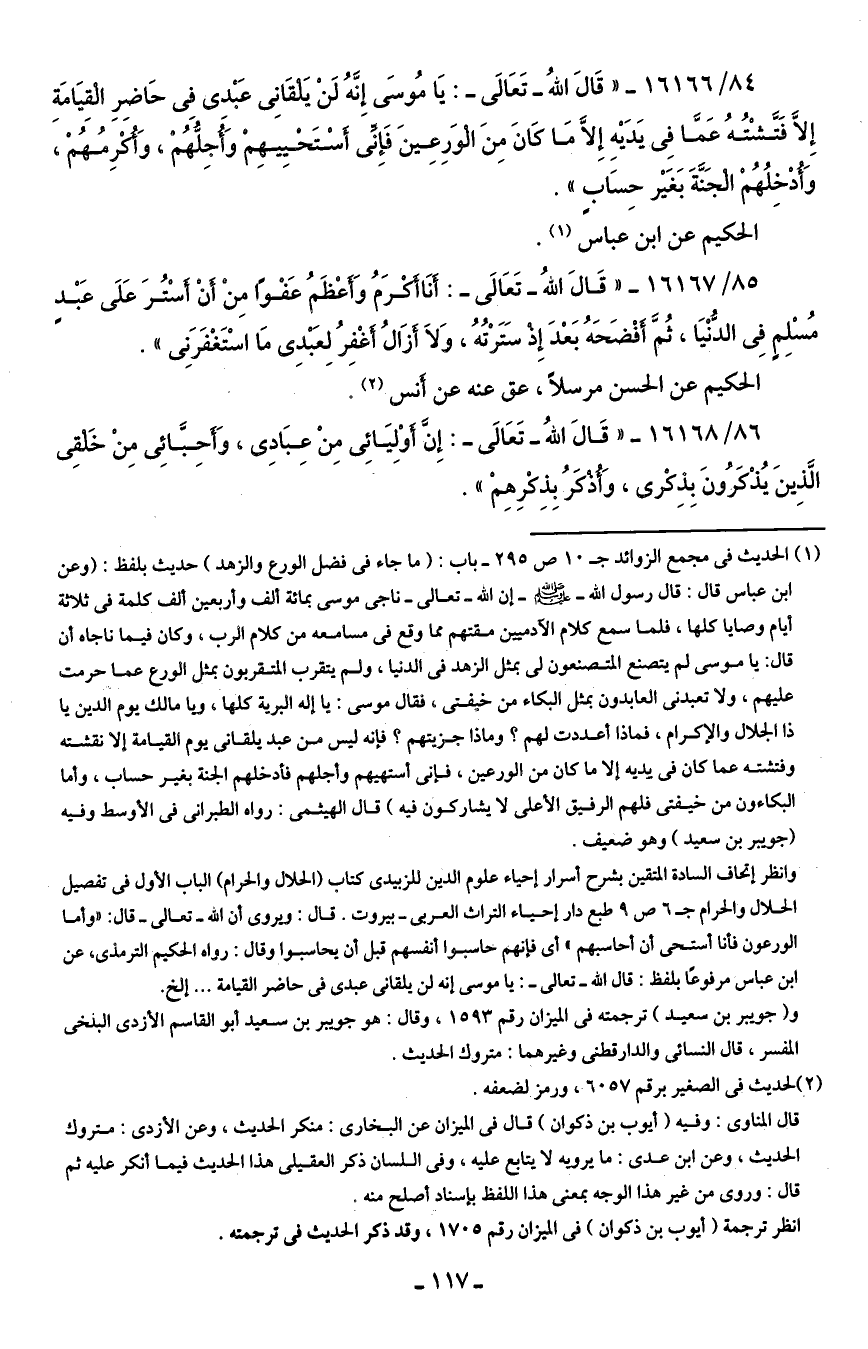 ٨٤/ ١٦١٦٦ ـ « قَالَ اللهُ ـ تَعَالَى ـ : يَا مُوسَى إِنَّهُ لَنْ يَلْقَانِى عَبْدِى فِى حَاضِرِ الْقِيَامَةِ
إِلاَّ فَتَّشْتُهُ عَمَّا فِى يَدَيْهِ إِلاَّ مَا كَانَ مِنَ الْوَرِعِينَ فَإِنِّى أَسْتَحْيِيهِمْ وَأُجِلُّهُمْ ، وَأُكْرِمُهُمْ ،
وَأُدْخِلُهُمْ الْجَنَّةَ بَغَيْرِ حِسَابٍ » .
الحكيم عن ابن عباس (١) .
٨٥/ ١٦١٦٧ ـ « قَالَ اللهُ ـ تَعَالَى ـ : أَنَاأَكْرَمُ وَأَعْظَمُ عَفْوًا مِنْ أَنْ أَسْتُرَ عَلَى عَبْدٍ
مُسْلِمٍ فِى الدُّنْيَا ، ثُمَّ أَفْضَحَهُ بَعْدَ إِذْ سَتَرْتُهُ ، وَلاَ أَزَالُ أَغْفِرُ لِعَبْدِى مَا اسْتَغْفَرَنِى » .
الحكيم عن الحسن مرسلاً ، عق عنه عن أنس (٢) .
٨٦/ ١٦١٦٨ ـ « قَالَ اللهُ ـ تَعَالَى ـ : إِنَّ أَوْلِيَائِى مِنْ عِبَادِى ، وَأَحِبَّائِى مِنْ خَلْقِى
الَّذِينَ يُذْكَرُونَ بِذِكْرِى ، وَأُذْكَرُ بِذِكْرِهِمْ » .
(١) الحديث فى مجمع الزوائد جـ ١٠ ص ٢٩٥ ـ باب : ( ما جاء فى فضل الورع والزهد ) حديث بلفظ : (وعن
ابن عباس قال : قال رسول الله ـ ﷺ ـ إن الله ـ تعالى ـ ناجى موسى بمائة ألف وأربعين ألف كلمة فى ثلاثة
أيام وصايا كلها ، فلما سمع كلام الآدميين مقتهم مما وقع فى مسامعه من كلام الرب ، وكان فيما ناجاه أن
قال: يا موسى لم يتصنع المتصنعون لى بمثل الزهد فى الدنيا ، ولم يتقرب المتقربون بمثل الورع عما حرمت
عليهم ، ولا تعبدنى العابدون بمثل البكاء من خيفتى ، فقال موسى : يا إله البرية كلها ، ويا مالك يوم الدين يا
ذا الجلال والإكرام ، فماذا أعددت لهم ؟ وماذا جزيتهم ؟ فإنه ليس من عبد يلقانى يوم القيامة إلا نقشته
وفتشته عما كان فى يديه إلا ما كان من الورعين ، فإنى أستهيهم وأجلهم فأدخلهم الجنة بغير حساب ، وأما
البكاءون من خيفتى فلهم الرفيق الأعلى لا يشاركون فيه ) قال الهيثمى : رواه الطبرانى فى الأوسط وفيه
(جويبر بن سعيد ) وهو ضعيف .
وانظر إتحاف السادة المتقين بشرح أسرار إحياء علوم الدين للزبيدى كتاب (الحلال والحرام) الباب الأول فى تفصيل
الحلال والحرام جـ ٦ ص ٩ طبع دار إحياء التراث العربى ـ بيروت . قال : ويروى أن الله ـ تعالى ـ قال: «وأما
الورعون فأنا أستحى أن أحاسبهم » أى فإنهم حاسبوا أنفسهم قبل أن يحاسبوا وقال : رواه الحكيم الترمذى، عن
ابن عباس مرفوعًا بلفظ : قال الله ـ تعالى ـ : يا موسى إنه لن يلقانى عبدى فى حاضر القيامة ... إلخ.
و( جويبر بن سعيد ) ترجمته فى الميزان رقم ١٥٩٣ ، وقال : هو جويبر بن سعيد أبو القاسم الأزدى البلخى
المفسر ، قال النسائى والدارقطنى وغيرهما : متروك الحديث .
(٢)لحديث فى الصغير برقم ٦٠٥٧ ، ورمز لضعفه .
قال المناوى : وفيه ( أيوب بن ذكوان ) قال فى الميزان عن البخارى : منكر الحديث ، وعن الأزدى : متروك
الحديث ، وعن ابن عدى : ما يرويه لا يتابع عليه ، وفى اللسان ذكر العقيلى هذا الحديث فيما أنكر عليه ثم
قال : وروى من غير هذا الوجه بمعنى هذا اللفظ بإسناد أصلح منه .
انظر ترجمة ( أيوب بن ذكوان ) فى الميزان رقم ١٧٠٥ ، وقد ذكر الحديث فى ترجمته .
ـ ١١٧ ـ